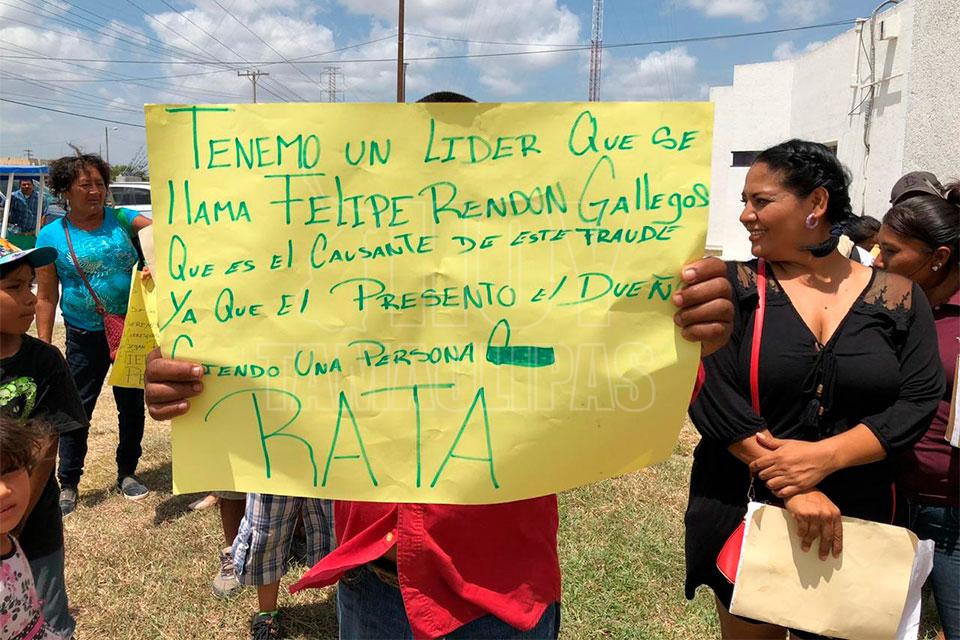 TENEMO UN LIDER QUE SE
llAMA FELIPE RENDON GAllEGOS
QUE ES El CAUSANTE DE ESTE FRAUDE
YA QUE El PRESENTO El DUEÑ
CIENDO UNA PERSONA
RATA
HOY
TAMAULIPAS